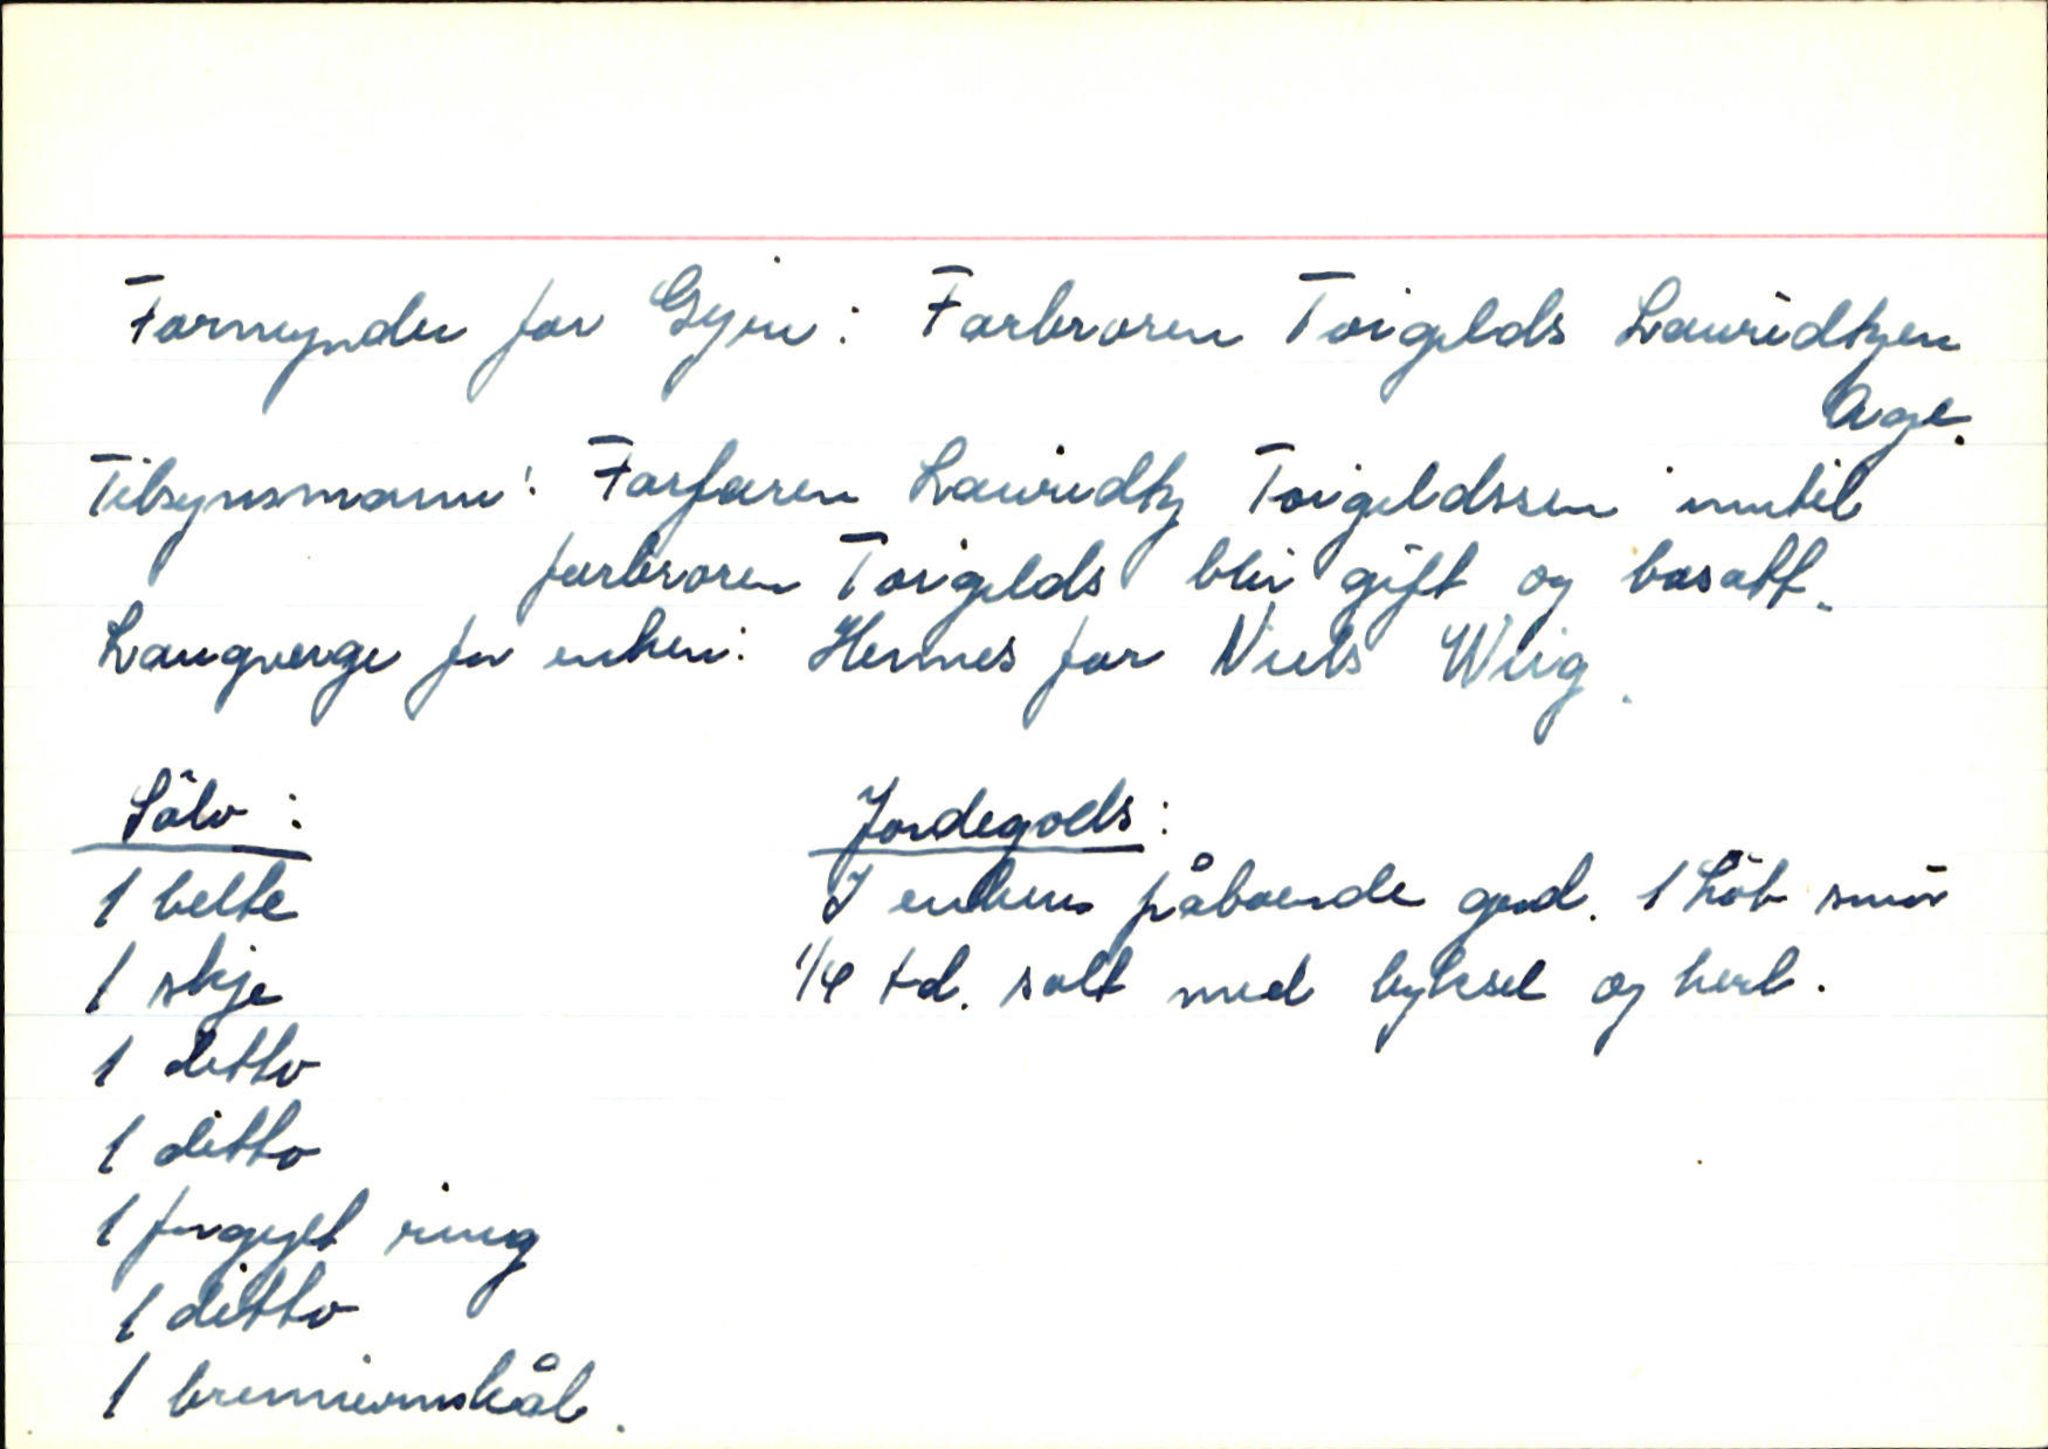 Formynder for Gyri: Farbroren Torgilds Lauridtzen
Age.
Tilsynsmann: Farfaren Lauridtz Torgildssen inntil
farbroren Torgilds blir gift og bosatt.
Laugverge for enken: Hennes far Niels Wiig.
Sölv:
1 belte
1 skje
1 ditto
1 ditto
1 forgylt ring
1 ditto
1 brennevinskål.
Jordegods:
I enkens påboende gård. 1 Löb smör
1/4 td. salt med byksel og herl.